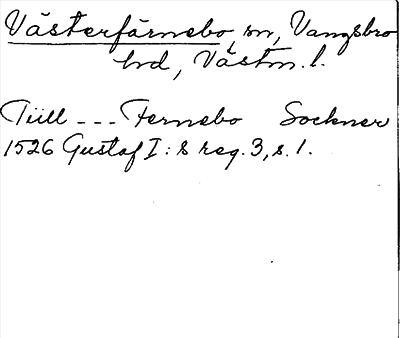 Västerfärnebo, sn, Vangsbro
hd, Västm. l.
Tiill --- Fernebo Sockner
1526 Gustaf I:s reg. 3, s. 1.